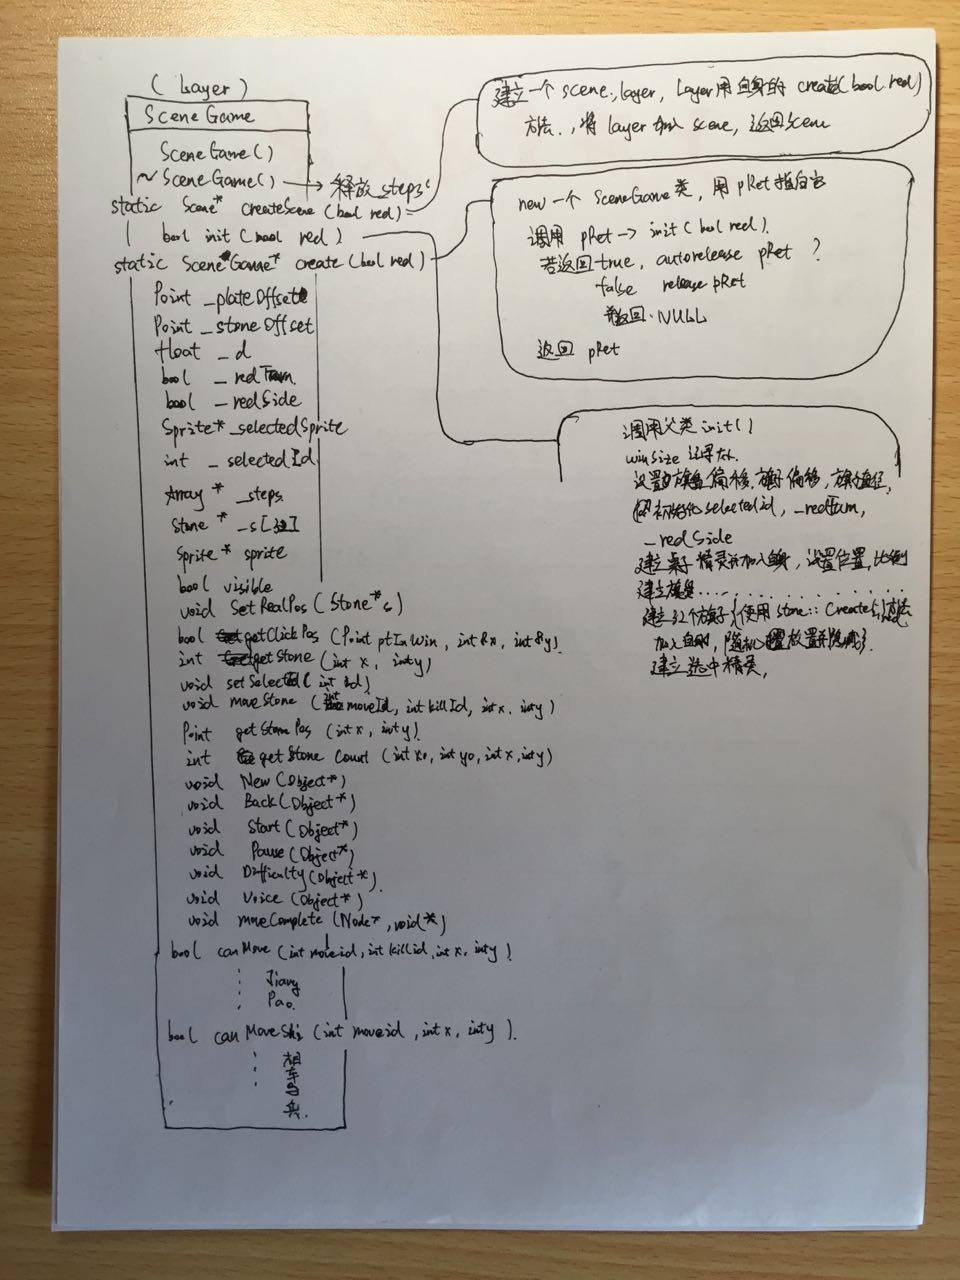 (Layer)
SceneGame
SceneGame()
~SceneGame() → 释放_steps
static Scene* createScene(bool red)
bool init(bool red)
static SceneGame* create(bool red)
Point _plateOffset
Point _stoneOffset
float _d
bool _redTurn
bool _redSide
Sprite* _selectedSprite
int _selectedId
Array* _steps
Stone* _s[32]
Sprite* sprite
bool visible
void SetRealPos(Stone* s)
bool getClickPos(Point ptInWin, int &x, int &y)
int getStone(int x, int y)
void setSelected(int id)
void moveStone(int moveId, int killId, int x, int y)
Point getStonePos(int x, int y)
int getStoneCount(int xo, int yo, int x, int y)
void New(Object*)
void Back(Object*)
void Start(Object*)
void Pause(Object*)
void Difficulty(Object*)
void Voice(Object*)
void moveComplete(Node*, void*)
bool canMove(int moveid, int killid, int x, int y)
Jiang
Pao
bool canMoveShi(int moveid, int x, int y)
相
车
马
兵
建立一个scene,layer, Layer用自身的create(bool red)
方法,将layer加入scene,返回scene
new一个SceneGame类,用pRet指向它
调用pRet->init(bool red).
若返回true, autorelease pRet ?
false release pRet
并返回NULL
返回 pRet
调用父类init()
winSize
设置 偏移, 偏移,
初始化selectedid, _redTurn,
_redSide
建立桌子精灵并加入自身,设置位置,比例
建立
建立32个 使用Stone::Create
建立选中精灵,